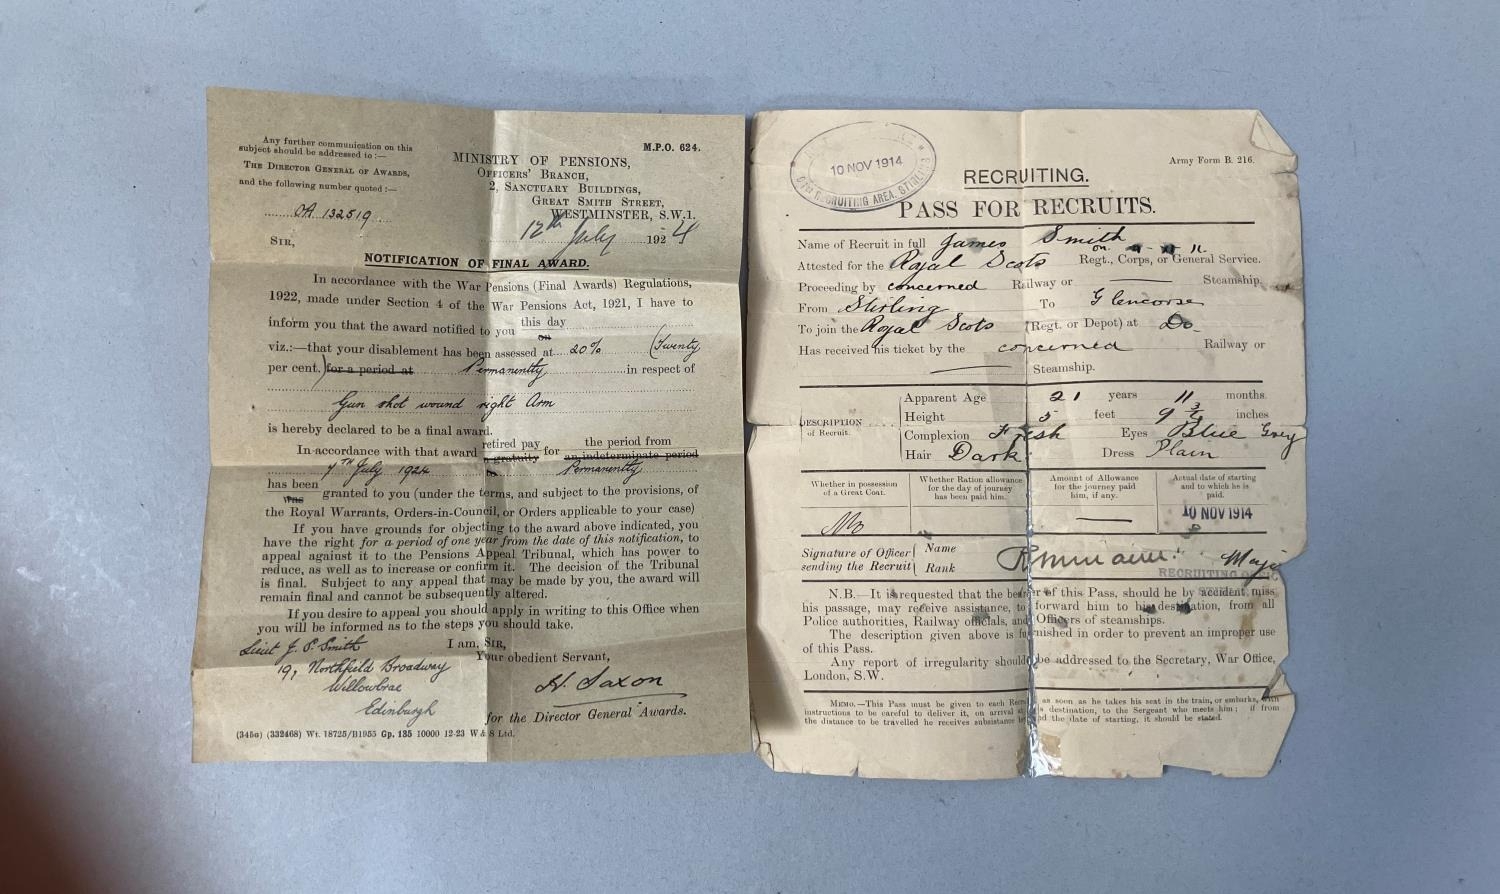 Any further communication on this
subject should be addressed to :—
THE DIRECTOR GENERAL OF AWARDS,
and the following number quoted :—
OA 132519
M.P.O. 624.
MINISTRY OF PENSIONS,
OFFICERS' BRANCH,
2, SANCTUARY BUILDINGS,
GREAT SMITH STREET,
WESTMINSTER, S.W.1.
12th July 1924
SIR,
NOTIFICATION OF FINAL AWARD.
In accordance with the War Pensions (Final Awards) Regulations,
1922, made under Section 4 of the War Pensions Act, 1921, I have to
inform you that the award notified to you this day
on
viz.:—that your disablement has been assessed at 20% (Twenty
per cent.) for a period at Permanently in respect of
Gun shot wound right Arm
is hereby declared to be a final award.
In accordance with that award retired pay for the period from
a gratuity an indeterminate period
7th July 1924 Permanently
has been
was granted to you (under the terms, and subject to the provisions, of
the Royal Warrants, Orders-in-Council, or Orders applicable to your case)
If you have grounds for objecting to the award above indicated, you
have the right for a period of one year from the date of this notification, to
appeal against it to the Pensions Appeal Tribunal, which has power to
reduce, as well as to increase or confirm it. The decision of the Tribunal
is final. Subject to any appeal that may be made by you, the award will
remain final and cannot be subsequently altered.
If you desire to appeal you should apply in writing to this Office when
you will be informed as to the steps you should take.
I am, SIR,
Your obedient Servant,
H. Saxon
for the Director General Awards.
Lieut J. P. Smith
19, Northfield Broadway
Willowbrae
Edinburgh
(345a) (332468) Wt. 18725/B1955 Gp. 135 10000 12-23 W & S Ltd.
10 NOV 1914
RECRUITING AREA. STIRLING
Army Form B. 216.
RECRUITING.
PASS FOR RECRUITS.
Name of Recruit in full James Smith
on
Attested for the Royal Scots Regt., Corps, or General Service.
Proceeding by concerned Railway or Steamship.
From Stirling To Glencorse
To join the Royal Scots (Regt. or Depot) at Do.
Has received his ticket by the concerned Railway or
Steamship.
DESCRIPTION
of Recruit.
Apparent Age 21 years 11 months.
Height 5 feet 9 3/4 inches
Complexion Fresh Eyes Blue Grey
Hair Dark Dress Plain
Whether in possession
of a Great Coat.
No
Whether Ration allowance
for the day of journey
has been paid him.
Amount of Allowance
for the journey paid
him, if any.
Actual date of starting
and to which he is
paid.
10 NOV 1914
Signature of Officer
sending the Recruit
Name
Rank
Major
RECRUITING OFFIC
N.B.—It is requested that the bearer of this Pass, should he by accident miss
his passage, may receive assistance, to forward him to his destination, from all
Police authorities, Railway officials, and Officers of steamships.
The description given above is furnished in order to prevent an improper use
of this Pass.
Any report of irregularity should be addressed to the Secretary, War Office,
London, S.W.
MEMO.—This Pass must be given to each Recruit as soon as he takes his seat in the train, or embarks, with
instructions to be careful to deliver it, on arrival at his destination, to the Sergeant who meets him ; if from
the distance to be travelled he receives subsistence beyond the date of starting, it should be stated.